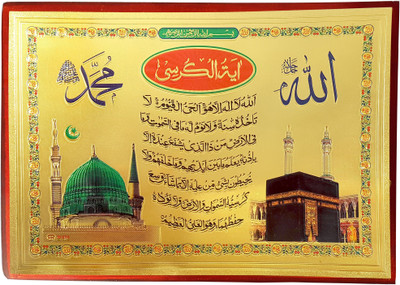 بسم الله الرحمن الرحيم
آية الكرسى
الله جل جلاله
محمد
الله لا اله الا هو الحي القيوم لا
تاخذه سنة ولا نوم له ما في السموت وما
في الارض من ذا الذي يشفع عنده الا
باذنه يعلم ما بين ايديهم وما خلفهم ولا
يحيطون بشيء من علمه الا بما شاء وسع
كرسيه السموت والارض ولا يؤده
حفظهما وهو العلي العظيم